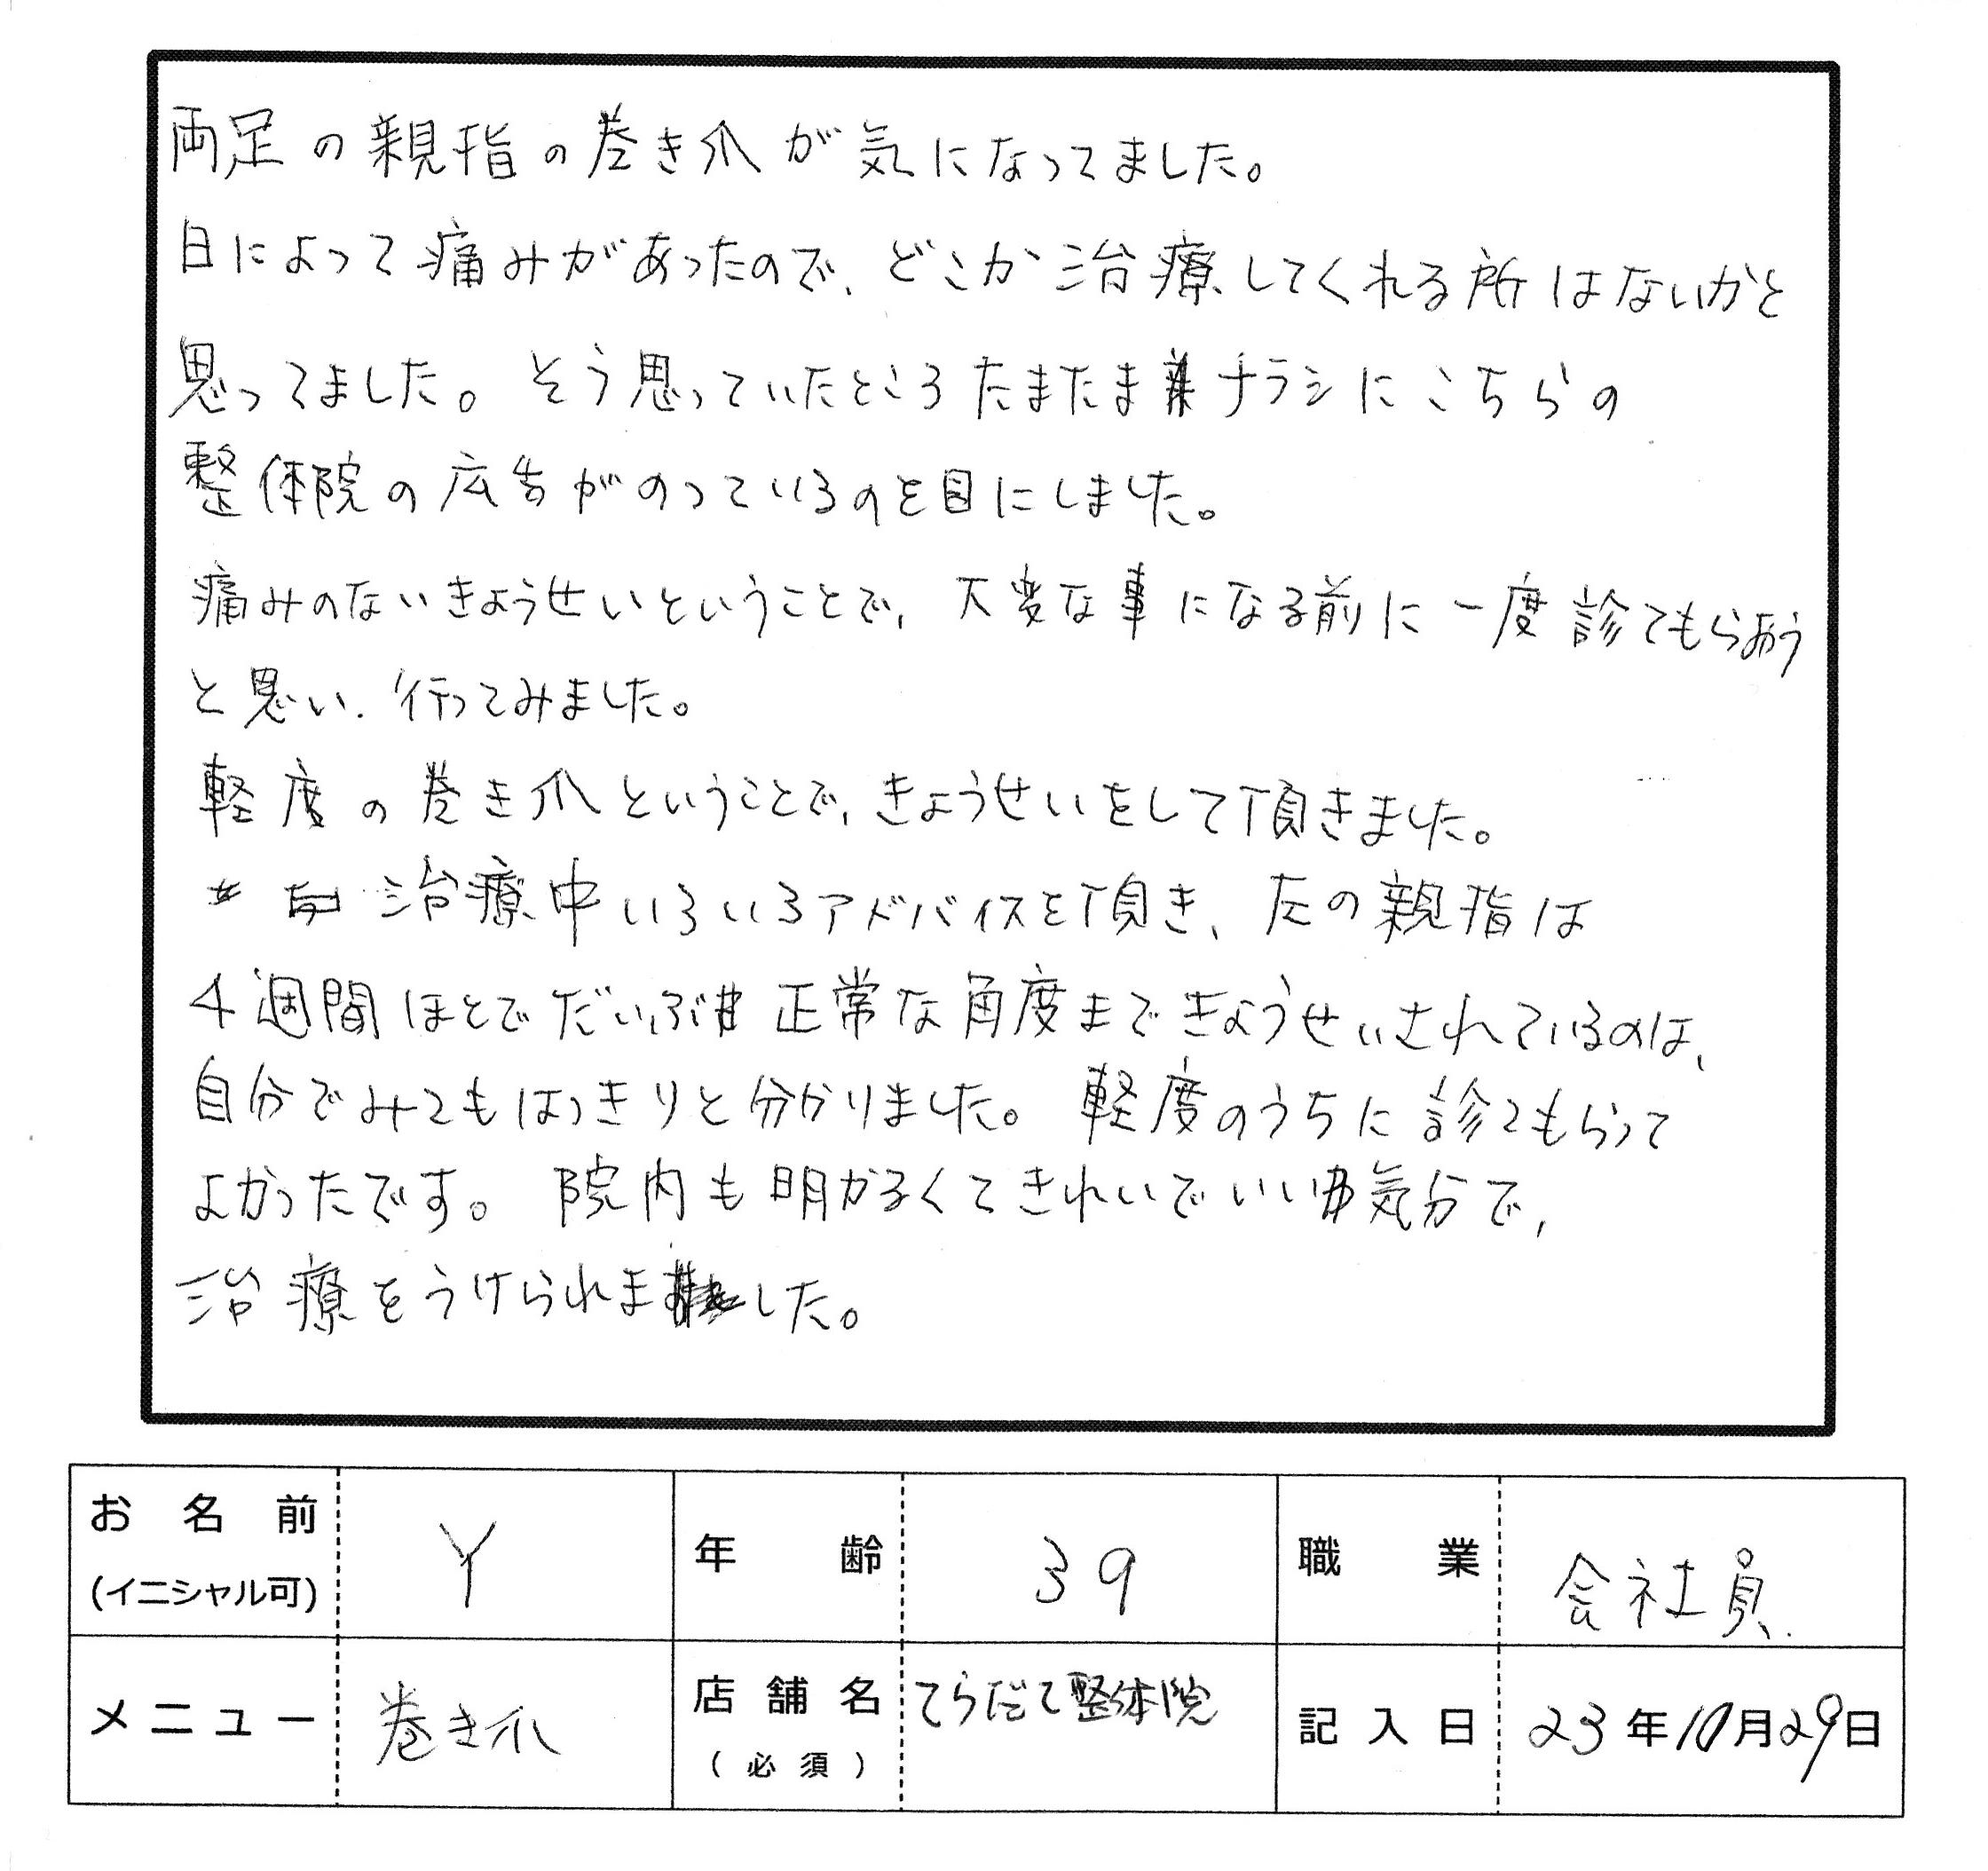 両足の親指の巻き爪が気になってました。
日によって痛みがあったので、どこか治療してくれる所はないかと
思ってました。そう思っていたところたまたまチラシにこちらの
整体院の広告がのっているのを目にしました。
痛みのないきょうせいということで、大変な事になる前に一度診てもらおう
と思い、行ってみました。
軽度の巻き爪ということで、きょうせいをして頂きました。
治療中いろいろアドバイスを頂き、左の親指は
4週間ほとでだいぶ正常な角度まできょうせいされているのは、
自分でみてもはっきりと分かりました。軽度のうちに診てもらって
よかったです。院内も明かるくてきれいでいい気分で、
治療をうけられました。
お名前 Y 年齢 39 職業 会社員
(イニシャル可)
メニュー 巻き爪 店舗名 てらだて整体院 記入日 23年10月29日
(必須)